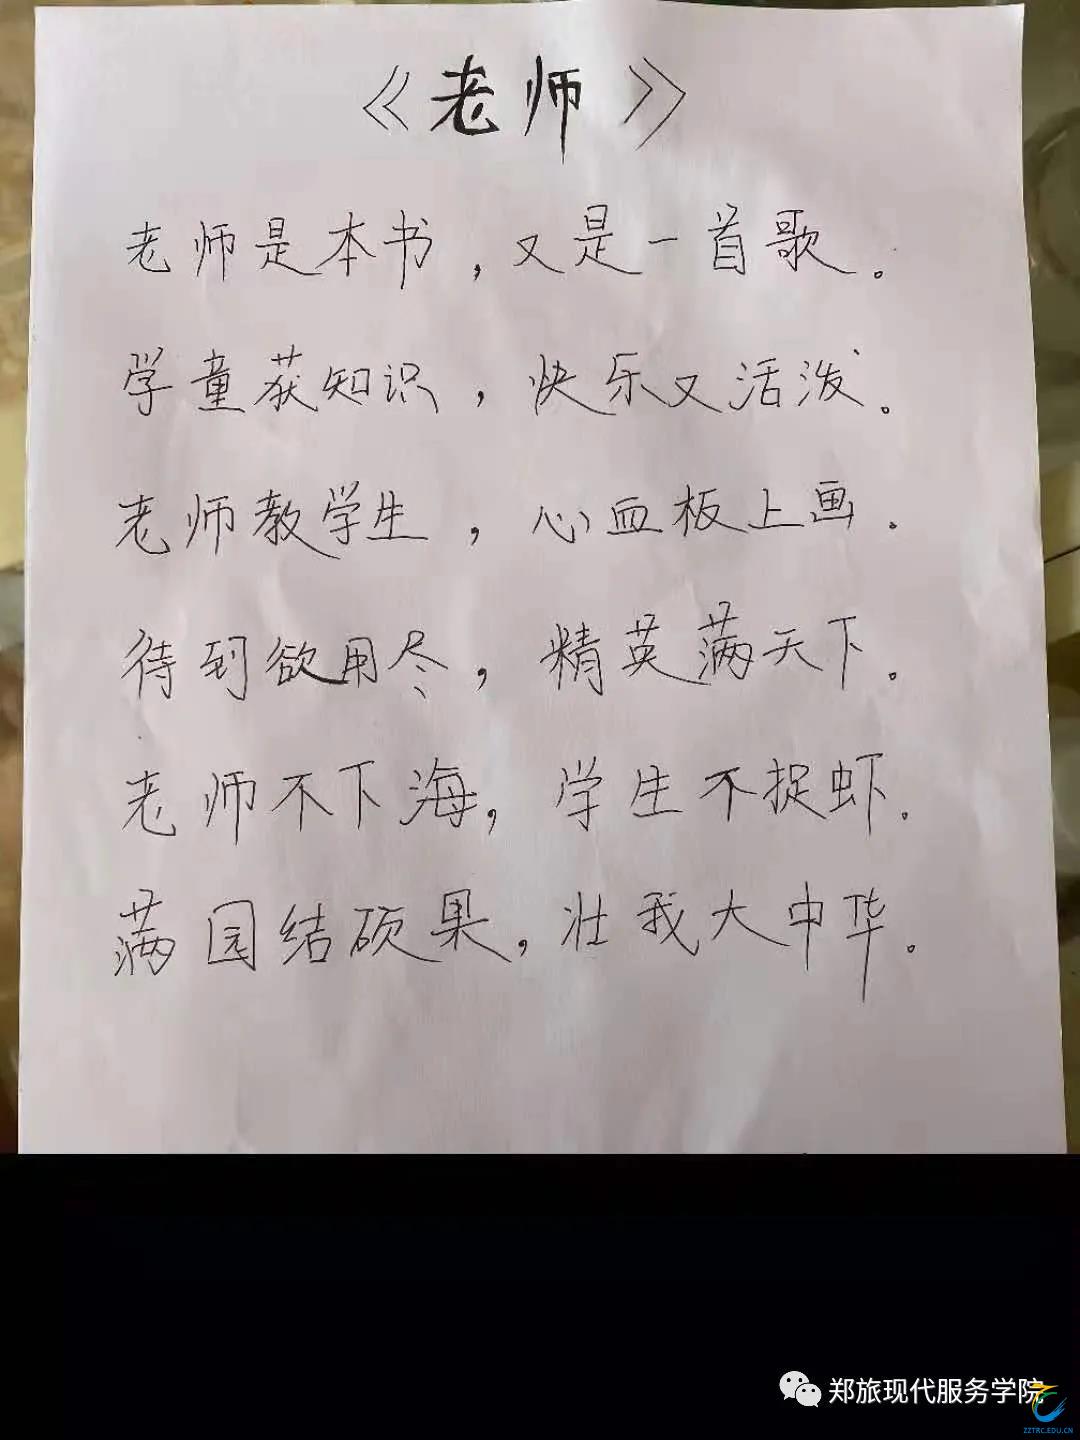 《老师》
老师是本书，又是一首歌。
学童获知识，快乐又活泼。
老师教学生，心血板上画.
待到欲用尽，精英满天下.
老师不下海，学生不捉虾.
满园结硕果，壮我大中华.
郑旅现代服务学院
ZZTRC.EDU.CN